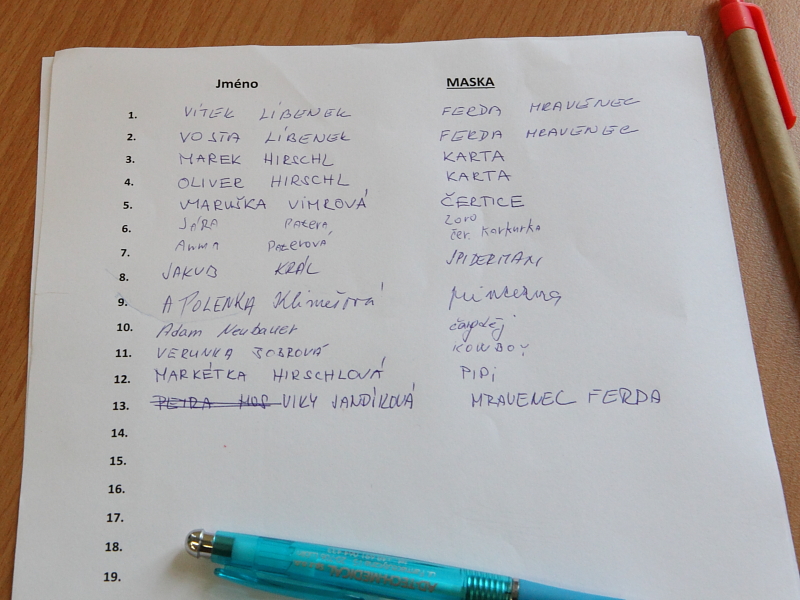 Jméno MASKA
1. VÍTEK LÍBENEK FERDA MRAVENEC
2. VOJTA LÍBENEK FERDA MRAVENEC
3. MAREK HIRSCHL KARTA
4. OLIVER HIRSCHL KARTA
5. MARUŠKA VIMROVÁ ČERTICE
6. JÁRA Patera Zoro
7. Anna Paterová čer. Karkurka
8. JAKUB KRÁL SPIDERMAN
9. APOLENKA Klimešová princezna
10. Adam Neubauer čaroděj
11. VERUNKA BOBROVÁ KOWBOY
12. MARKÉTKA HIRSCHLOVÁ PIPI
13. PETRA MOS VIKY JANDÍKOVÁ MRAVENEC FERDA
14.
15.
16.
17.
18.
19.